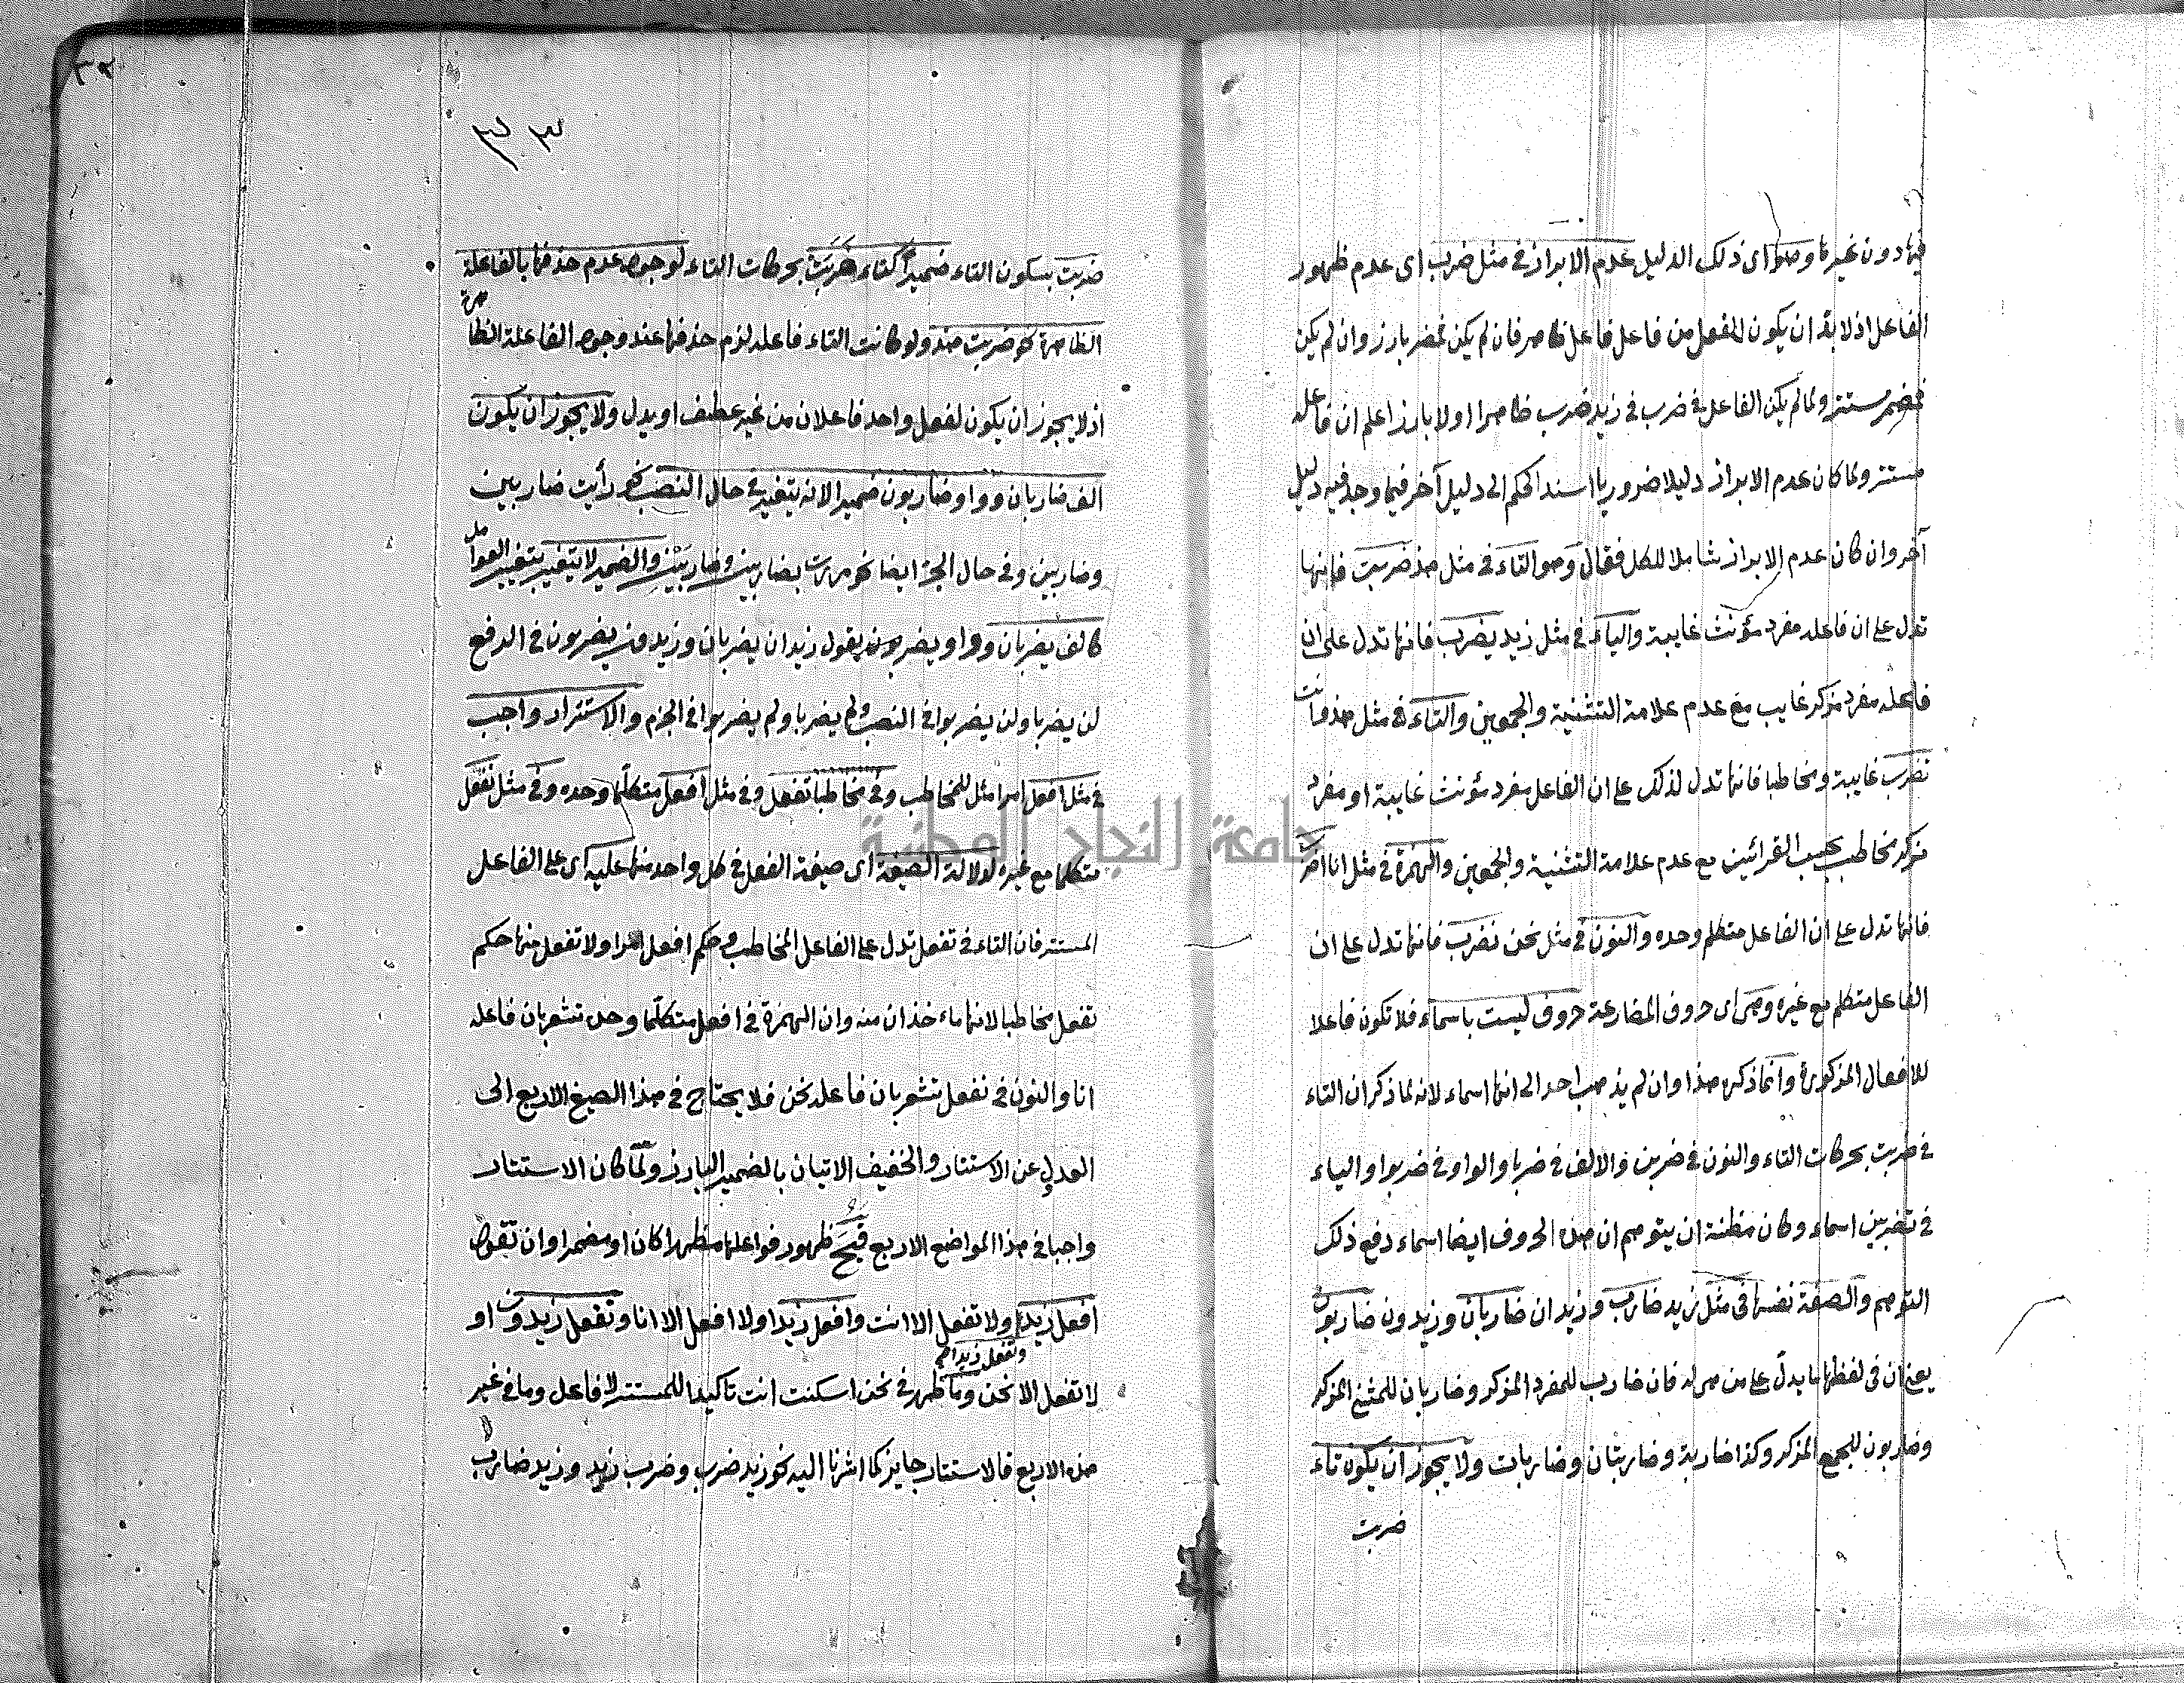 فيها دون غيرها وهو اى ذلك الدليل عدم الابراز فى مثل ضرب اى عدم ظهور
الفاعل اذ لا بد ان يكون للفعل من فاعل فاعل ظاهر فان لم يكن فمضمر بارز وان لم يكن
فمضمر مستتر ولما لم يكن الفاعل فى ضرب فى زيد ضرب ظاهرا ولا بارزا علم ان فاعله
مستتر ولما كان عدم الابراز دليلا ضروريا اسند الحكم الى دليل آخر فيما وجد فيه دليل
آخر وان كان عدم الابراز شاملا للكل فقال وهو التاء فى مثل هند ضربت فانها
تدل على ان فاعله مفرد مؤنث غايبة والياء فى مثل زيد يضرب فانها تدل على ان
فاعله مفرد مذكر غايب مع عدم علامة التثنية والجمعين والتاء فى مثل هند وانت
تضرب غايبة ومخاطبا فانها تدل لذلك على ان الفاعل مفرد مؤنث غايبة او مفرد
مذكر مخاطب بحسب القرائين مع عدم علامة التثنية والجمعين والهمزة فى مثل انا اضرب
فانها تدل على ان الفاعل متكلم وحده والنون فى مثل نحن نضرب فانها تدل على ان
الفاعل متكلم مع غيره وهى اى حروف المضارعة حروف ليست باسماء فلا تكون فاعلا
للافعال المذكورة وانما ذكر هذا وان لم يذهب احد الى انها اسماء لانه لما ذكر ان التاء
فى ضربت بحركات التاء والنون فى ضربن والالف فى ضربا والواو فى ضربوا والياء
فى تضربين اسماء وكان مظنة ان يتوهم ان هذه الحروف ايضا اسماء دفع ذلك
التوهم والصفة نفسها فى مثل زيد ضارب وزيدان ضاربان وزيدون ضاربون
يعنى ان فى لفظها ما يدل على من هى له فان ضارب للمفرد المذكر وضاربان للمثنى المذكر
وضاربون للجمع المذكر وكذا ضاربة وضاربتان وضاربات ولا يجوز ان يكون تاء
ضربت
٣٢
٣٣
ضربت بسكون التاء ضميرا كتاء ضربت بحركات التاء لوجود عدم حذفها بالفاعلة
الظاهرة نحو ضربت هند ولو كانت التاء فاعله لزم حذفها عند وجود الفاعلة الظاهرة
اذ لا يجوز ان يكون لفعل واحد فاعلان من غير عطف او بدل ولا يجوز ان يكون
الف ضاربان وواو ضاربون ضميرا لانه يتغير فى حال النصب نحو رأيت ضاربين
وضاربين وفى حال الجر ايضا نحو مررت بضاربين وضاربين والضمير لا يتغير بتغير العوامل
كالف يضربان وواو يضربون يقول زيدان يضربان وزيدون يضربون فى الرفع
لن يضربا ولن يضربوا فى النصب ولم يضربا ولم يضربوا فى الجزم والاستتار واجب
فى مثل افعل امرا مثل للمخاطب وفى مخاطبا تفعل وفى مثل افعل متكلما وحده وفى مثل نفعل
متكلما مع غيره لدلالة الصيغة اى صيغة الفعل فى كل واحد منها عليه اى على الفاعل
المستتر فان التاء فى تفعل تدل على الفاعل المخاطب وحكم افعل امرا ولا تفعل منها حكم
تفعل مخاطبا لانهما مأخذان منه وان الهمزة فى افعل متكلما وحده تشعر بان فاعله
انا والنون فى نفعل تشعر بان فاعله نحن فلا يحتاج فى هذا الصيغ الاربع الى
العدل عن الاستتار والخفيف الاتيان بالضمير البارز ولما كان الاستتار
واجبا فى هذا المواضع الاربع قبح ظهور فواعلها مظهرا كان او مضمرا وان تقول
افعل زيد ولا تفعل الا انت وافعل زيد اولا افعل الا انا وتفعل زيدون او
وتفعل زيد
لا تفعل الا نحن وما ظهر فى نحن اسكنت انت تاكيدا للمستتر لا فاعل وما فى غير
هذه الاربع فالاستتار جايز كما اشرنا اليه نحو زيد ضرب وضرب زيد وزيد ضارب
جامعة النجاح الوطنية